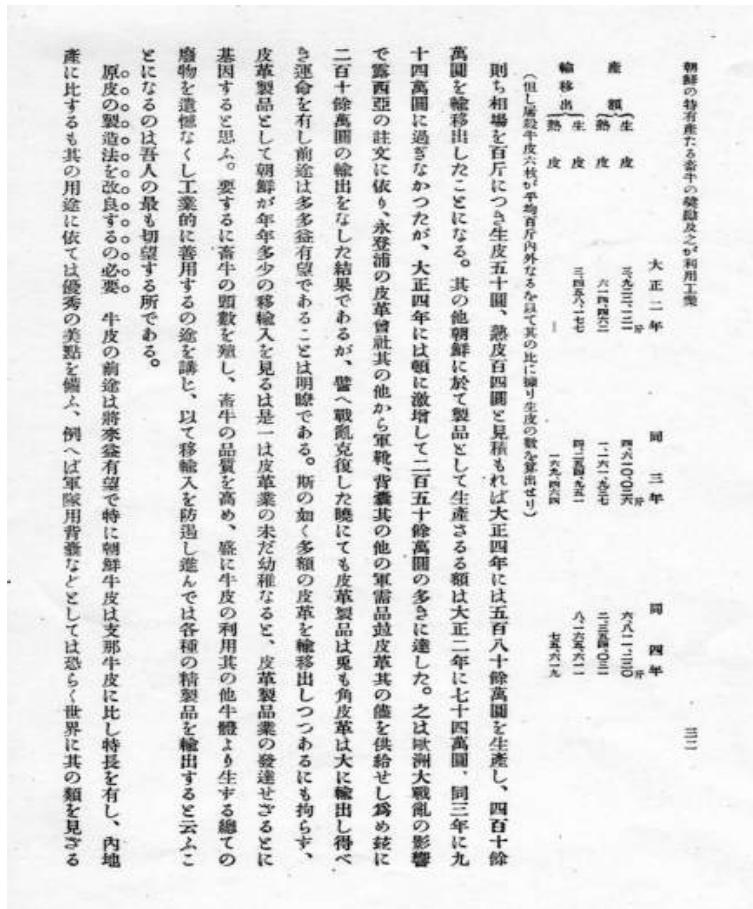 朝鮮の特有產たる畜牛の奬勵及之が利用工業
三二
大正二年
同三年
同四年
產額{生皮
三、九三三、一二一斤
四、六一〇、〇三六斤
六、八一一、二三〇斤
熟皮
六一四、四六二
一、一六一、九三七
二、三五四、〇三一
輸移出{生皮
三、四五八、一七七
四、二五四、九五一
八、一六五、六一一
熟皮
―
一六九、四六四
七五、六一九
(但し屠殺牛皮六枚が平均百斤內外なるを以て其の比に據り生皮の數を算出せり)
則ち相場を百斤につき生皮五十圓、熟皮百四圓と見積もれば大正四年には五百八十餘萬圓を生產し、四百十餘
萬圓を輸移出したことになる。其の他朝鮮に於て製品として生產さるる額は大正二年に七十四萬圓、同三年に九
十四萬圓に過ぎなかつたが、大正四年には頓に激增して二百五十餘萬圓の多きに達した。之は歐洲大戰亂の影響
で露西亞の註文に依り、永登浦の皮革會社其の他から軍靴、背囊其の他の軍需品竝皮革其の儘を供給せし爲め玆に
二百十餘萬圓の輸出をなした結果であるが、譬へ戰亂克復した曉にても皮革製品は兎も角皮革は大に輸出し得べ
き運命を有し前途は多多益有望であることは明瞭である。斯の如く多額の皮革を輸移出しつつあるにも拘らず、
皮革製品として朝鮮が年年多少の移輸入を見るは是一は皮革業の未だ幼稚なると、皮革製品業の發達せざるとに
基因すると思ふ。要するに畜牛の頭數を殖し、畜牛の品質を高め、盛に牛皮の利用其の他牛體より生ずる總ての
廢物を遺憾なくし工業的に善用するの途を講じ、以て移輸入を防遏し進んでは各種の精製品を輸出すると云ふこ
とになるのは吾人の最も切望する所である。
原皮の製造法を改良するの必要　牛皮の前途は將來益有望で特に朝鮮牛皮は支那牛皮に比し特長を有し、內地
產に比するも其の用途に依ては優秀の美點を備ふ、例へば軍隊用背囊などとしては恐らく世界に其の類を見ざる